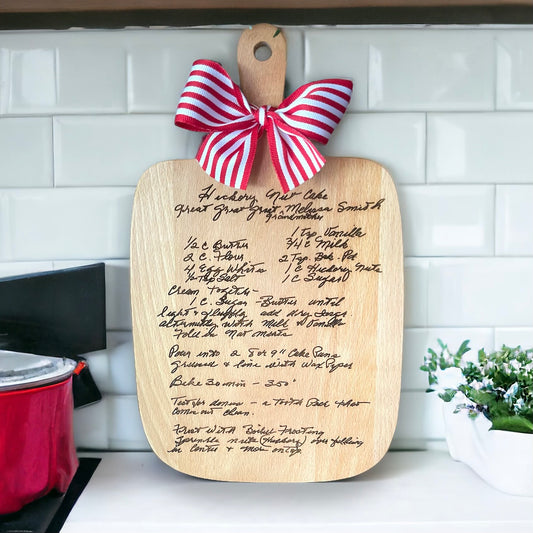 Hickory Nut Cake
Great Great Great Melissa Smith
Grandmother
1 Tsp Vanilla
1/2 C Butter 3/4 C Milk
2 C. Flour 2 Tsp Bak. Pd
4 Egg Whites 1 C Hickory Nuts
1/2 Tsp Salt 1 C Sugar
Cream Together -
1 C. Sugar - Butter until
light & fluffy add dry Ings.
alternatly with Milk & Vanilla
Fold in Nut meats
Pour into 2 8 or 9" Cake Pans
Greased & line with Wax Paper
Bake 30 min - 350°
Test for doness - a Tooth Pick that
comes out clean.
Frost With Boiled Frosting
Sprinkle nuts (Hickory) over filling
in Center & more on top